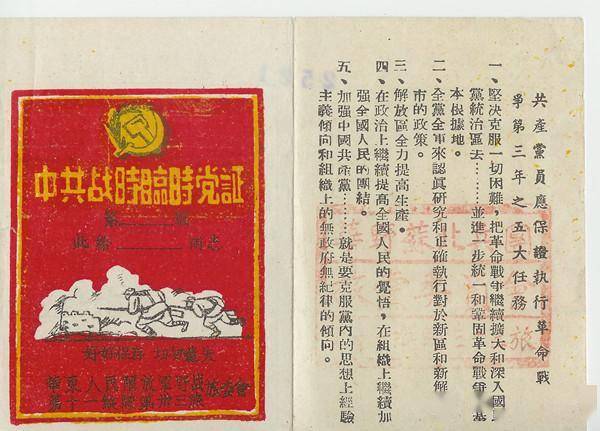 中共战時臨時党証
第　　號
此給　　同志
好好保存 切勿遺失
華東人民解放軍野战
第十一縱隊第卅三旅
旅委會
共產黨員應保證執行革命戰
爭第三年之五大任務
一、堅決克服一切困難，把革命戰爭繼續擴大和深入國民
黨統治區去……並進一步統一和鞏固革命戰爭的基
本根據地。
二、全黨全軍來認眞研究和正確執行對於新區和新解
市的政策。
三、解放區全力提高生產。
四、在政治上繼續提高全國人民的覺悟，在組織上繼續加
强全國人民的團結。
五、加强中國共產黨……就是要克服黨內的思想上經驗
主義傾向和組織上的無政府無紀律的傾向。